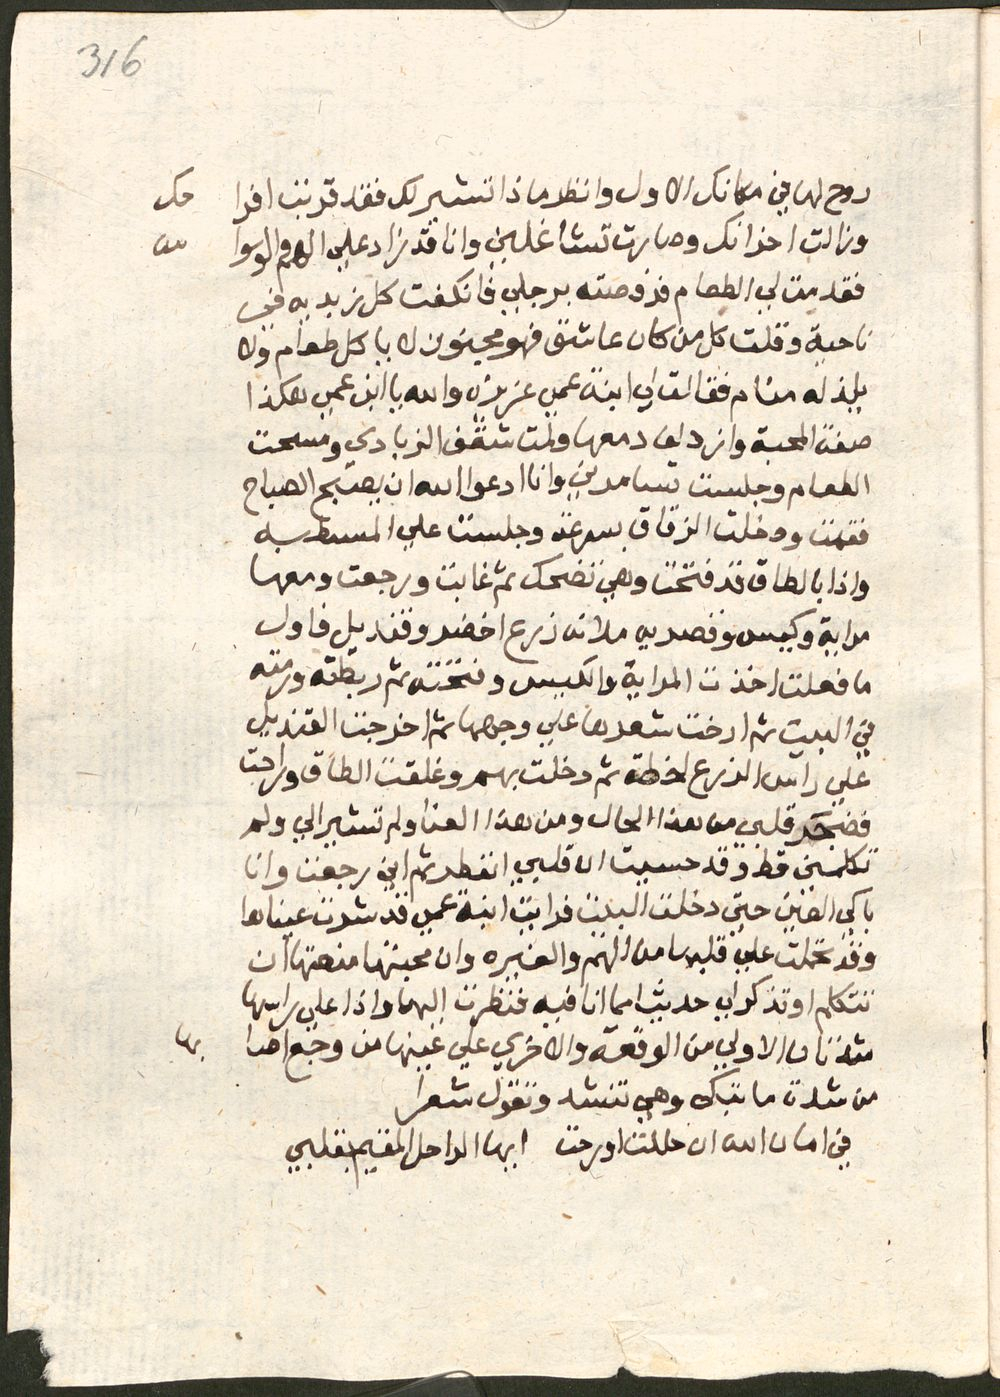 316
روح لها في مكانك الاول وانظر ماذا تشير لك فقد قربت افرا حك
وزالت احزانك وصارت تسأ غلبني وانا قد زاد علي الهم والوسوا س
فقدمت لي الطعام فرفصته برجلي فانكفت كل زبديه في
ناحية وقلت كل من كان عاشق فهو مجنون لا ياكل طعام ولا
يلذ له منام فقالت لي ابنة عمي عزيزه والله يا ابن عمي هكذا
صفة المحبة وانزلت دمعها ولمت شقف الزبادي ومسحت
الطعام وجلست تسامرني وانا ادعوا الله ان يصبح الصباح
فقمت ودخلت الزقاق بسرعة وجلست علي المسطبه
واذا بالطاق قد فتحت وهي تضحك ثم غابت ورجعت ومعها
مراية وكيس وقصريه ملانه زرع اخضر وقنديل فاول
ما فعلت اخذت المراية والكيس وفتحته ثم ربطته ورمته
في البيت ثم ارخت شعرها علي وجهها ثم اخرجت القنديل
علي راس الزرع لحظة ثم دخلت بهم وغلقت الطاق وراحت
قلبي من هذا الحال ومن هذا العنا ولم تشير الي ولم
تكلمني قط وقد حسيت ان قلبي انفطر ثم اني رجعت وانا
باكي العين حتي دخلت البيت فرايت ابنة عمي قد شدت عيناها
وقد تحملت علي قلبها من الهم والغيره وان محبتها منعتها ان
تتكلم او تذكر لي حديثا مما انا فيه فنظرت اليها واذا علي راسها
الاولي من الوقعة والاخري علي عينها من وجع اصا بها
من شدت ما تبك وهي تنشد وتقول شعرا
في امان الله ان حللت او رحت ايها الراحل المقيم بقلبي